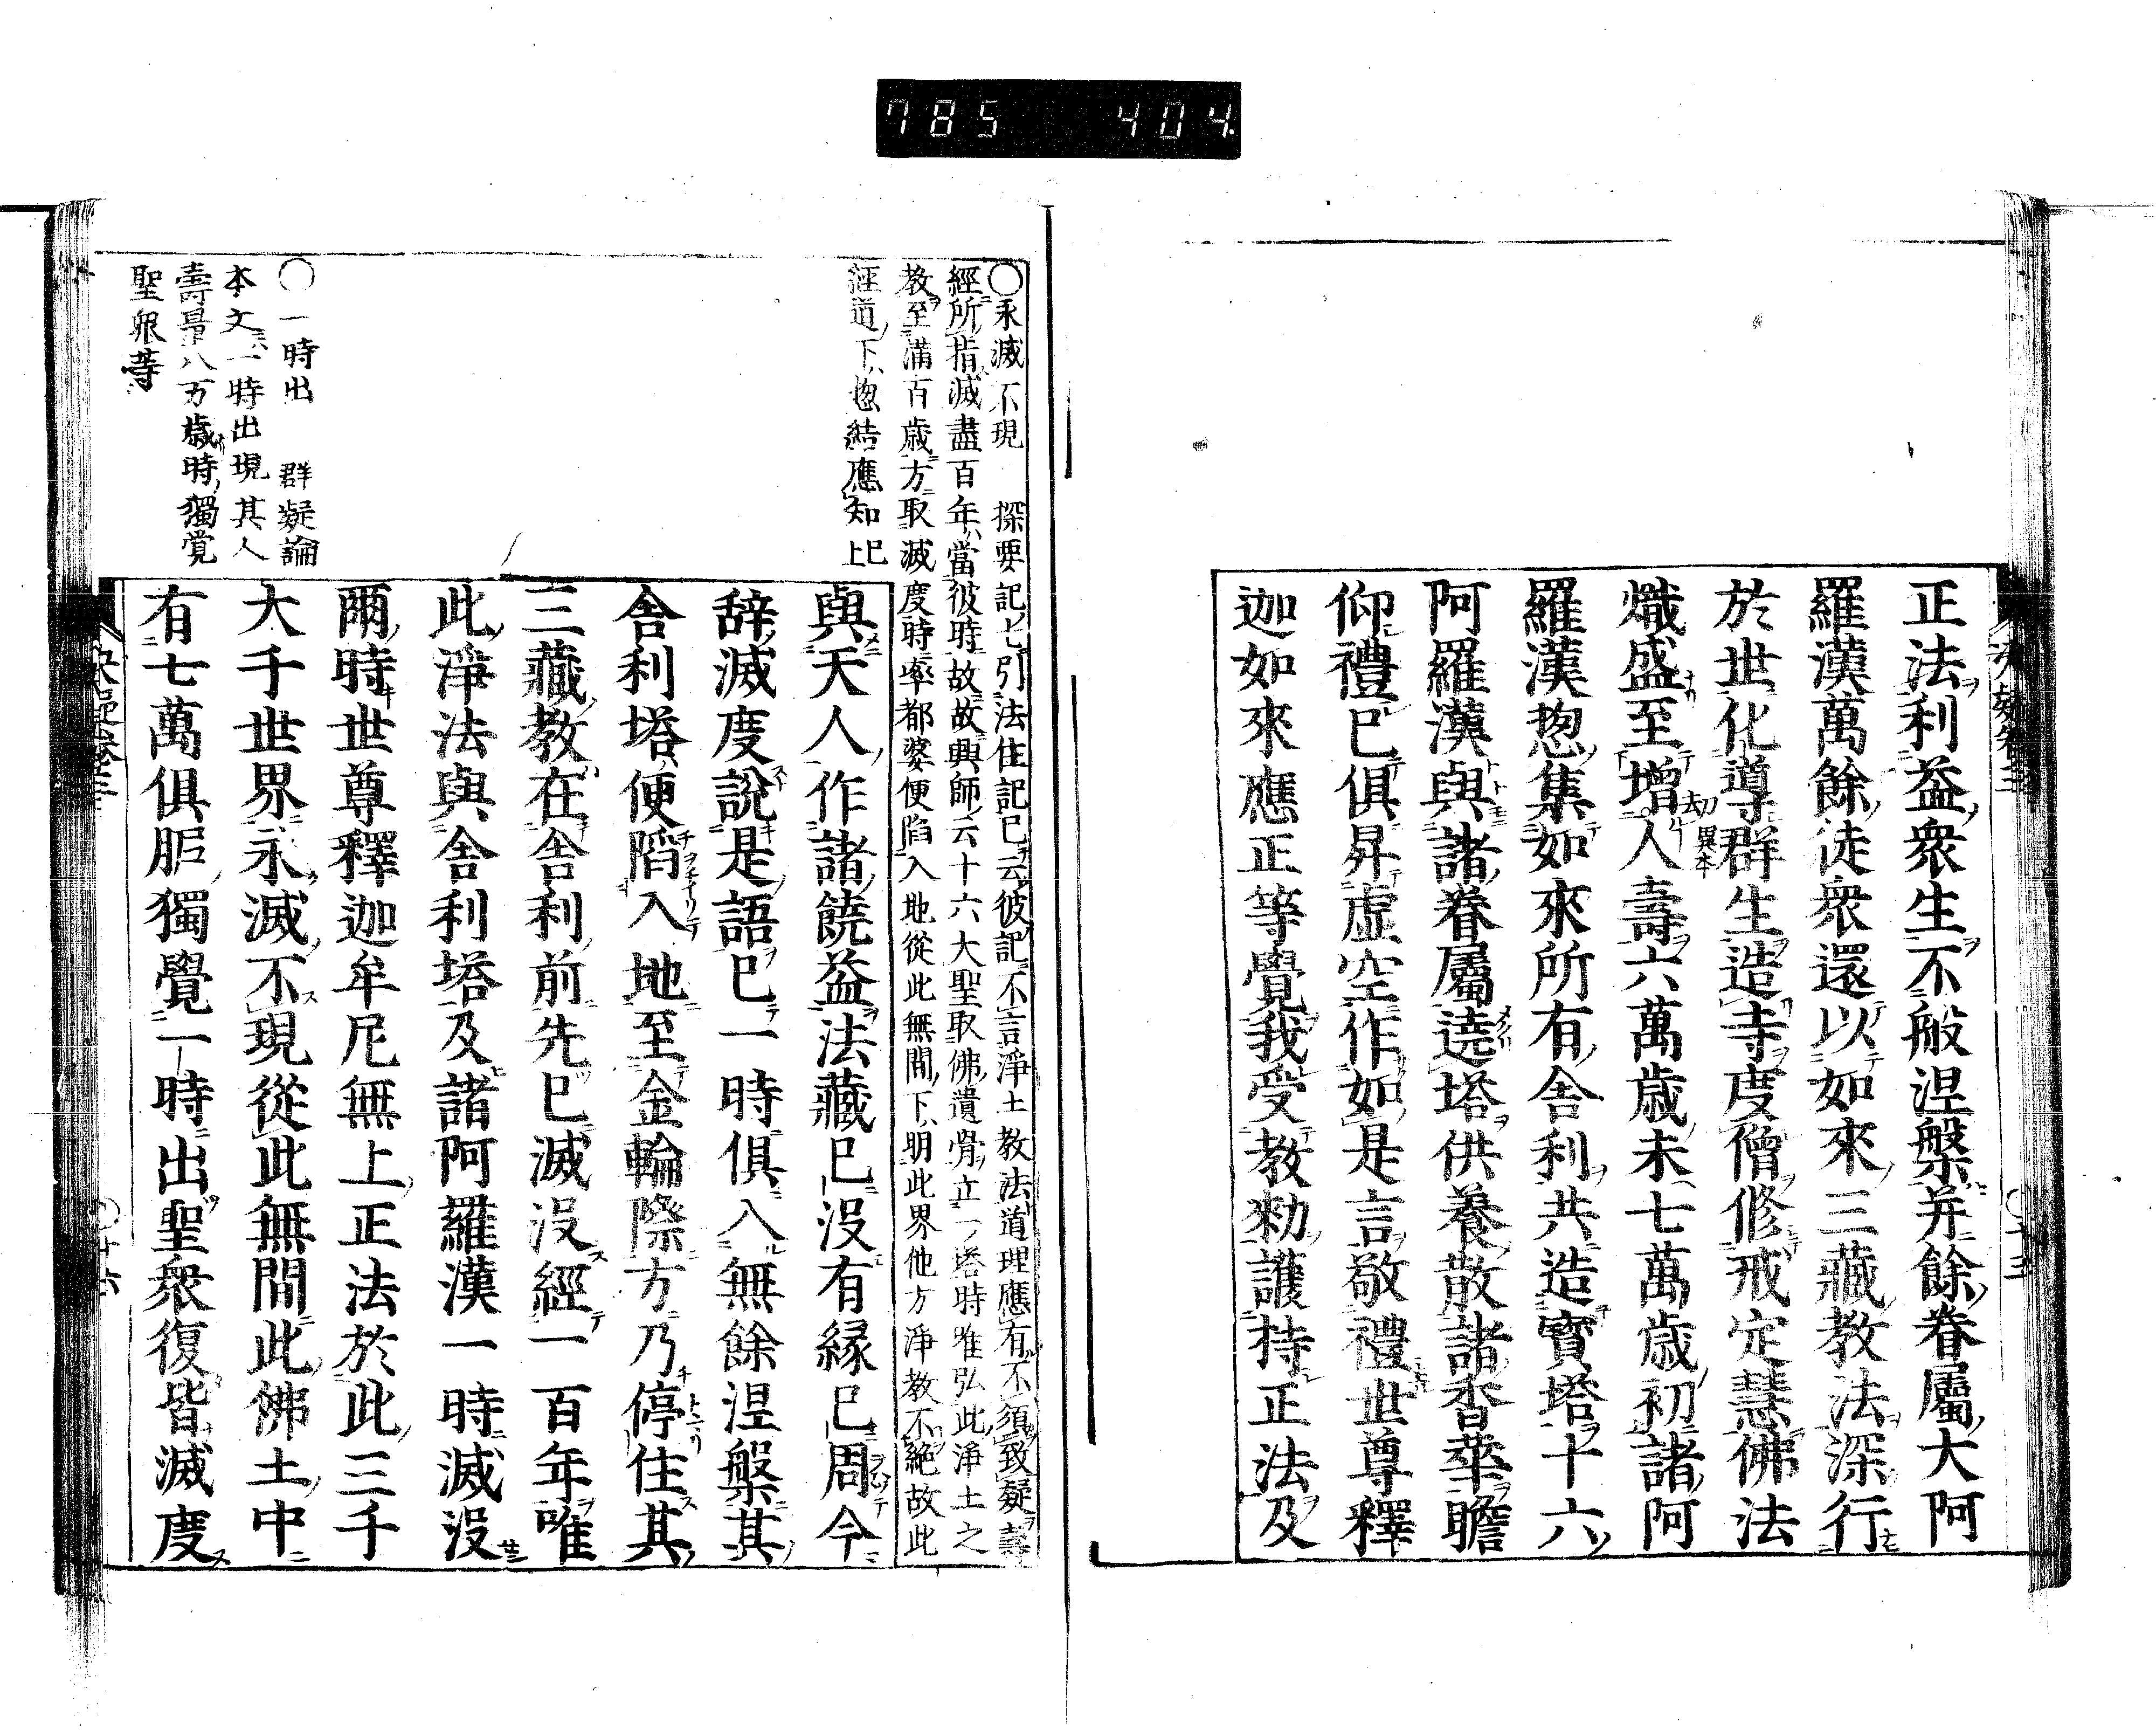 785 404
正法利益衆生不般涅槃并餘眷屬大阿
羅漢萬餘徒衆還以如來三藏教法深行
於世化導群生造寺度僧修戒定慧佛法
熾盛至增人壽六萬歳未七萬歳初諸阿
劫異本
羅漢惣集如來所有舎利共造寳塔十六
阿羅漢與諸眷屬遶塔供養散諸香華瞻
仰禮已俱昇虚空作如是言敬禮世尊釋
迦如來應正等覺我受教勅護持正法及
〇永滅不現 探要記七引法住記已云彼記不言淨土教法道理應有不須致疑
經所指滅盡百年當彼時故故興師云十六大聖取佛遺骨立一塔時唯弘此淨土之
教至滿百歳方取滅度時率都婆便陷入地從此無間下明此界他方淨教不絶故此
經道下惣結應知已上
與天人作諸饒益法藏已没有縁已周今
辞滅度說是語已一時俱入無餘涅槃其
舎利塔便陷入地至金輪際方乃停住其
三藏教在舎利前先已滅没經一百年唯
此淨法與舎利塔及諸阿羅漢一時滅没
爾時世尊釋迦牟尼無上正法於此三千
大千世界永滅不現從此無間此佛土中
有七萬俱胝獨覺一時出聖衆復皆滅度
〇一時出 群疑論
本文一時出現其人
壽量八万歳時獨覚
聖衆等